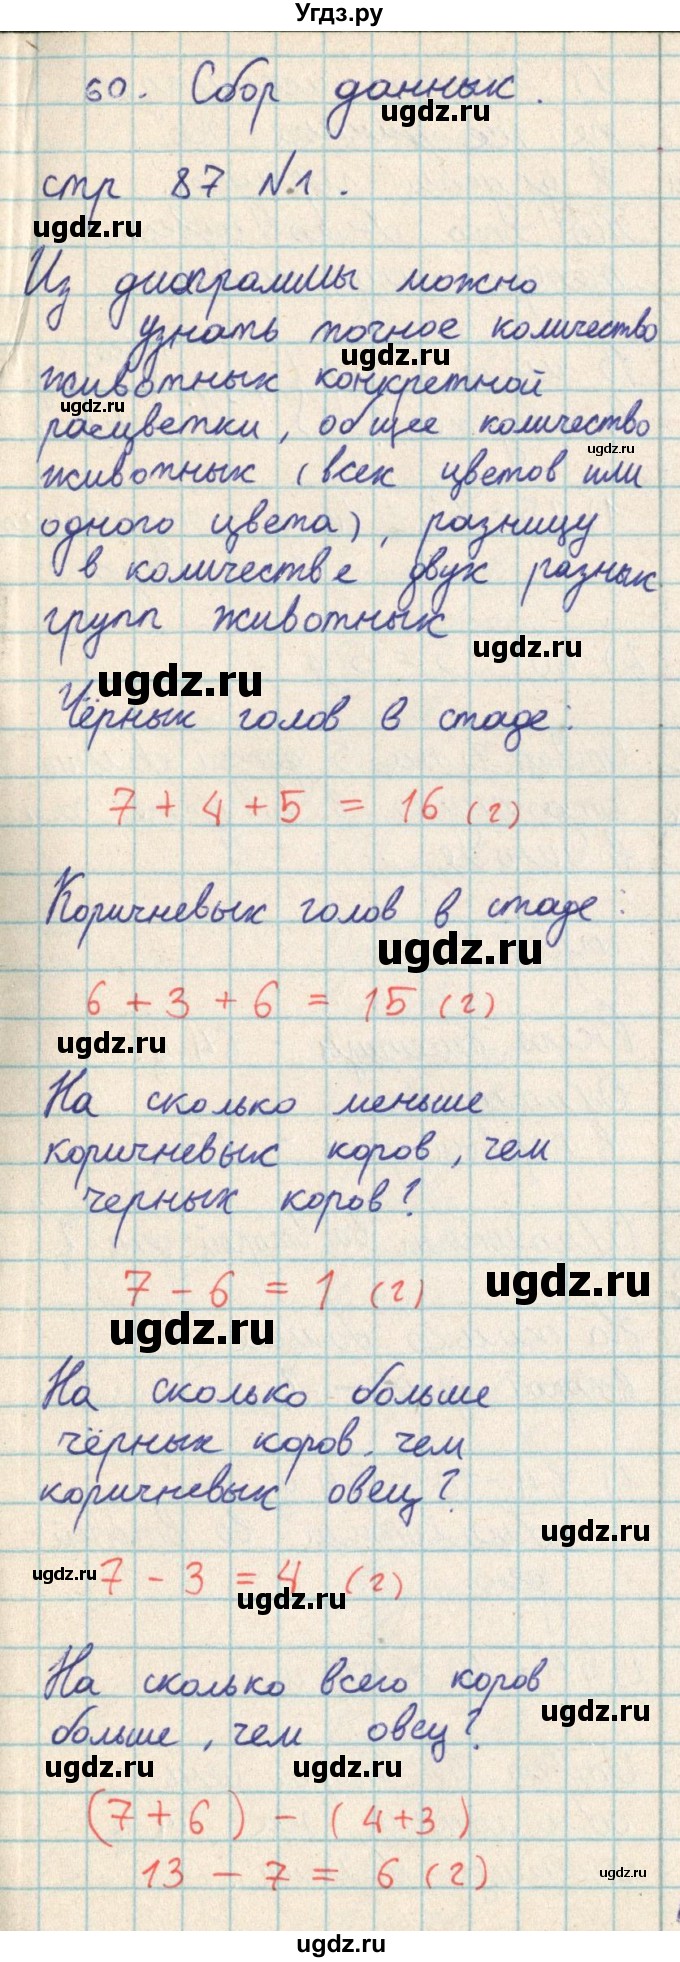 Угдз.ру
60. Сбор данных.
ugdz.ru
стр 87 №1.
ugdz.ru
Из диаграммы можно
узнать точное количество
ugdz.ru
животных конкретной
ugdz.ru
расцветки, общее количество
ugdz.ru
животных (всех цветов или
одного цвета), разницу
в количестве двух разных
групп животных
ugdz.ru
ugdz.ru
Чёрных голов в стаде:
7 + 4 + 5 = 16 (г)
Коричневых голов в стаде:
ugdz.ru
6 + 3 + 6 = 15 (г)
ugdz.ru
На сколько меньше
коричневых коров, чем
черных коров?
7 - 6 = 1 (г)
ugdz.ru
ugdz.ru
На сколько больше
чёрных коров, чем
коричневых овец?
ugdz.ru
ugdz.ru
7 - 3 = 4 (г)
ugdz.ru
На сколько всего коров
ugdz.ru
больше, чем овец?
ugdz.ru ugdz.ru
(7 + 6) - (4+3)
13 - 7 = 6 (г)
ugdz.ru
ugdz.ru